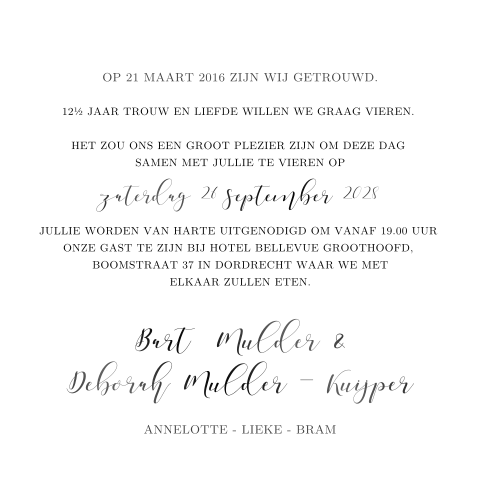 OP 21 MAART 2016 ZIJN WIJ GETROUWD.
12½ JAAR TROUW EN LIEFDE WILLEN WE GRAAG VIEREN.
HET ZOU ONS EEN GROOT PLEZIER ZIJN OM DEZE DAG
SAMEN MET JULLIE TE VIEREN OP
zaterdag september 2028
JULLIE WORDEN VAN HARTE UITGENODIGD OM VANAF 19.00 UUR
ONZE GAST TE ZIJN BIJ HOTEL BELLEVUE GROOTHOOFD,
BOOMSTRAAT 37 IN DORDRECHT WAAR WE MET
ELKAAR ZULLEN ETEN.
Bart Mulder &
Deborah Mulder - Kuijper
ANNELOTTE - LIEKE - BRAM